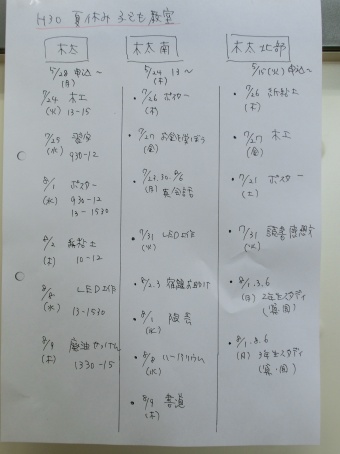 H30 夏休み 子ども教室
木太
5/28 申込〜
(月)
7/24 木工
(火) 13-15
7/25 習字
(水) 930-12
8/1 ポスター
(水) 930-12
13-1530
8/2 紙粘土
(木) 10-12
8/8 LED工作
(水) 13-1530
8/9 廃油せっけん
(木) 1330-15
木太南
5/24 13〜
(木)
・7/26 ポスター
(木)
・7/27 お金を学ぼう
(金)
・7/23.30.8/6
(月) 英会話
・7/31 LED工作
(火)
・8/2.3 宿題お助け
・8/1 陶芸
(水)
・8/8 ハーバリウム
(水)
・8/9 書道
(木)
木太北部
5/15(火) 申込〜
・7/26 紙粘土
(木)
・7/27 木工
(金)
・7/21 ポスター
(土)
・7/31 読書感想文
(火)
・8/1.3.6
(月) 2年生スタディ
(算・国)
・8/1.3.6
(月) 3年生スタディ
(算・国)